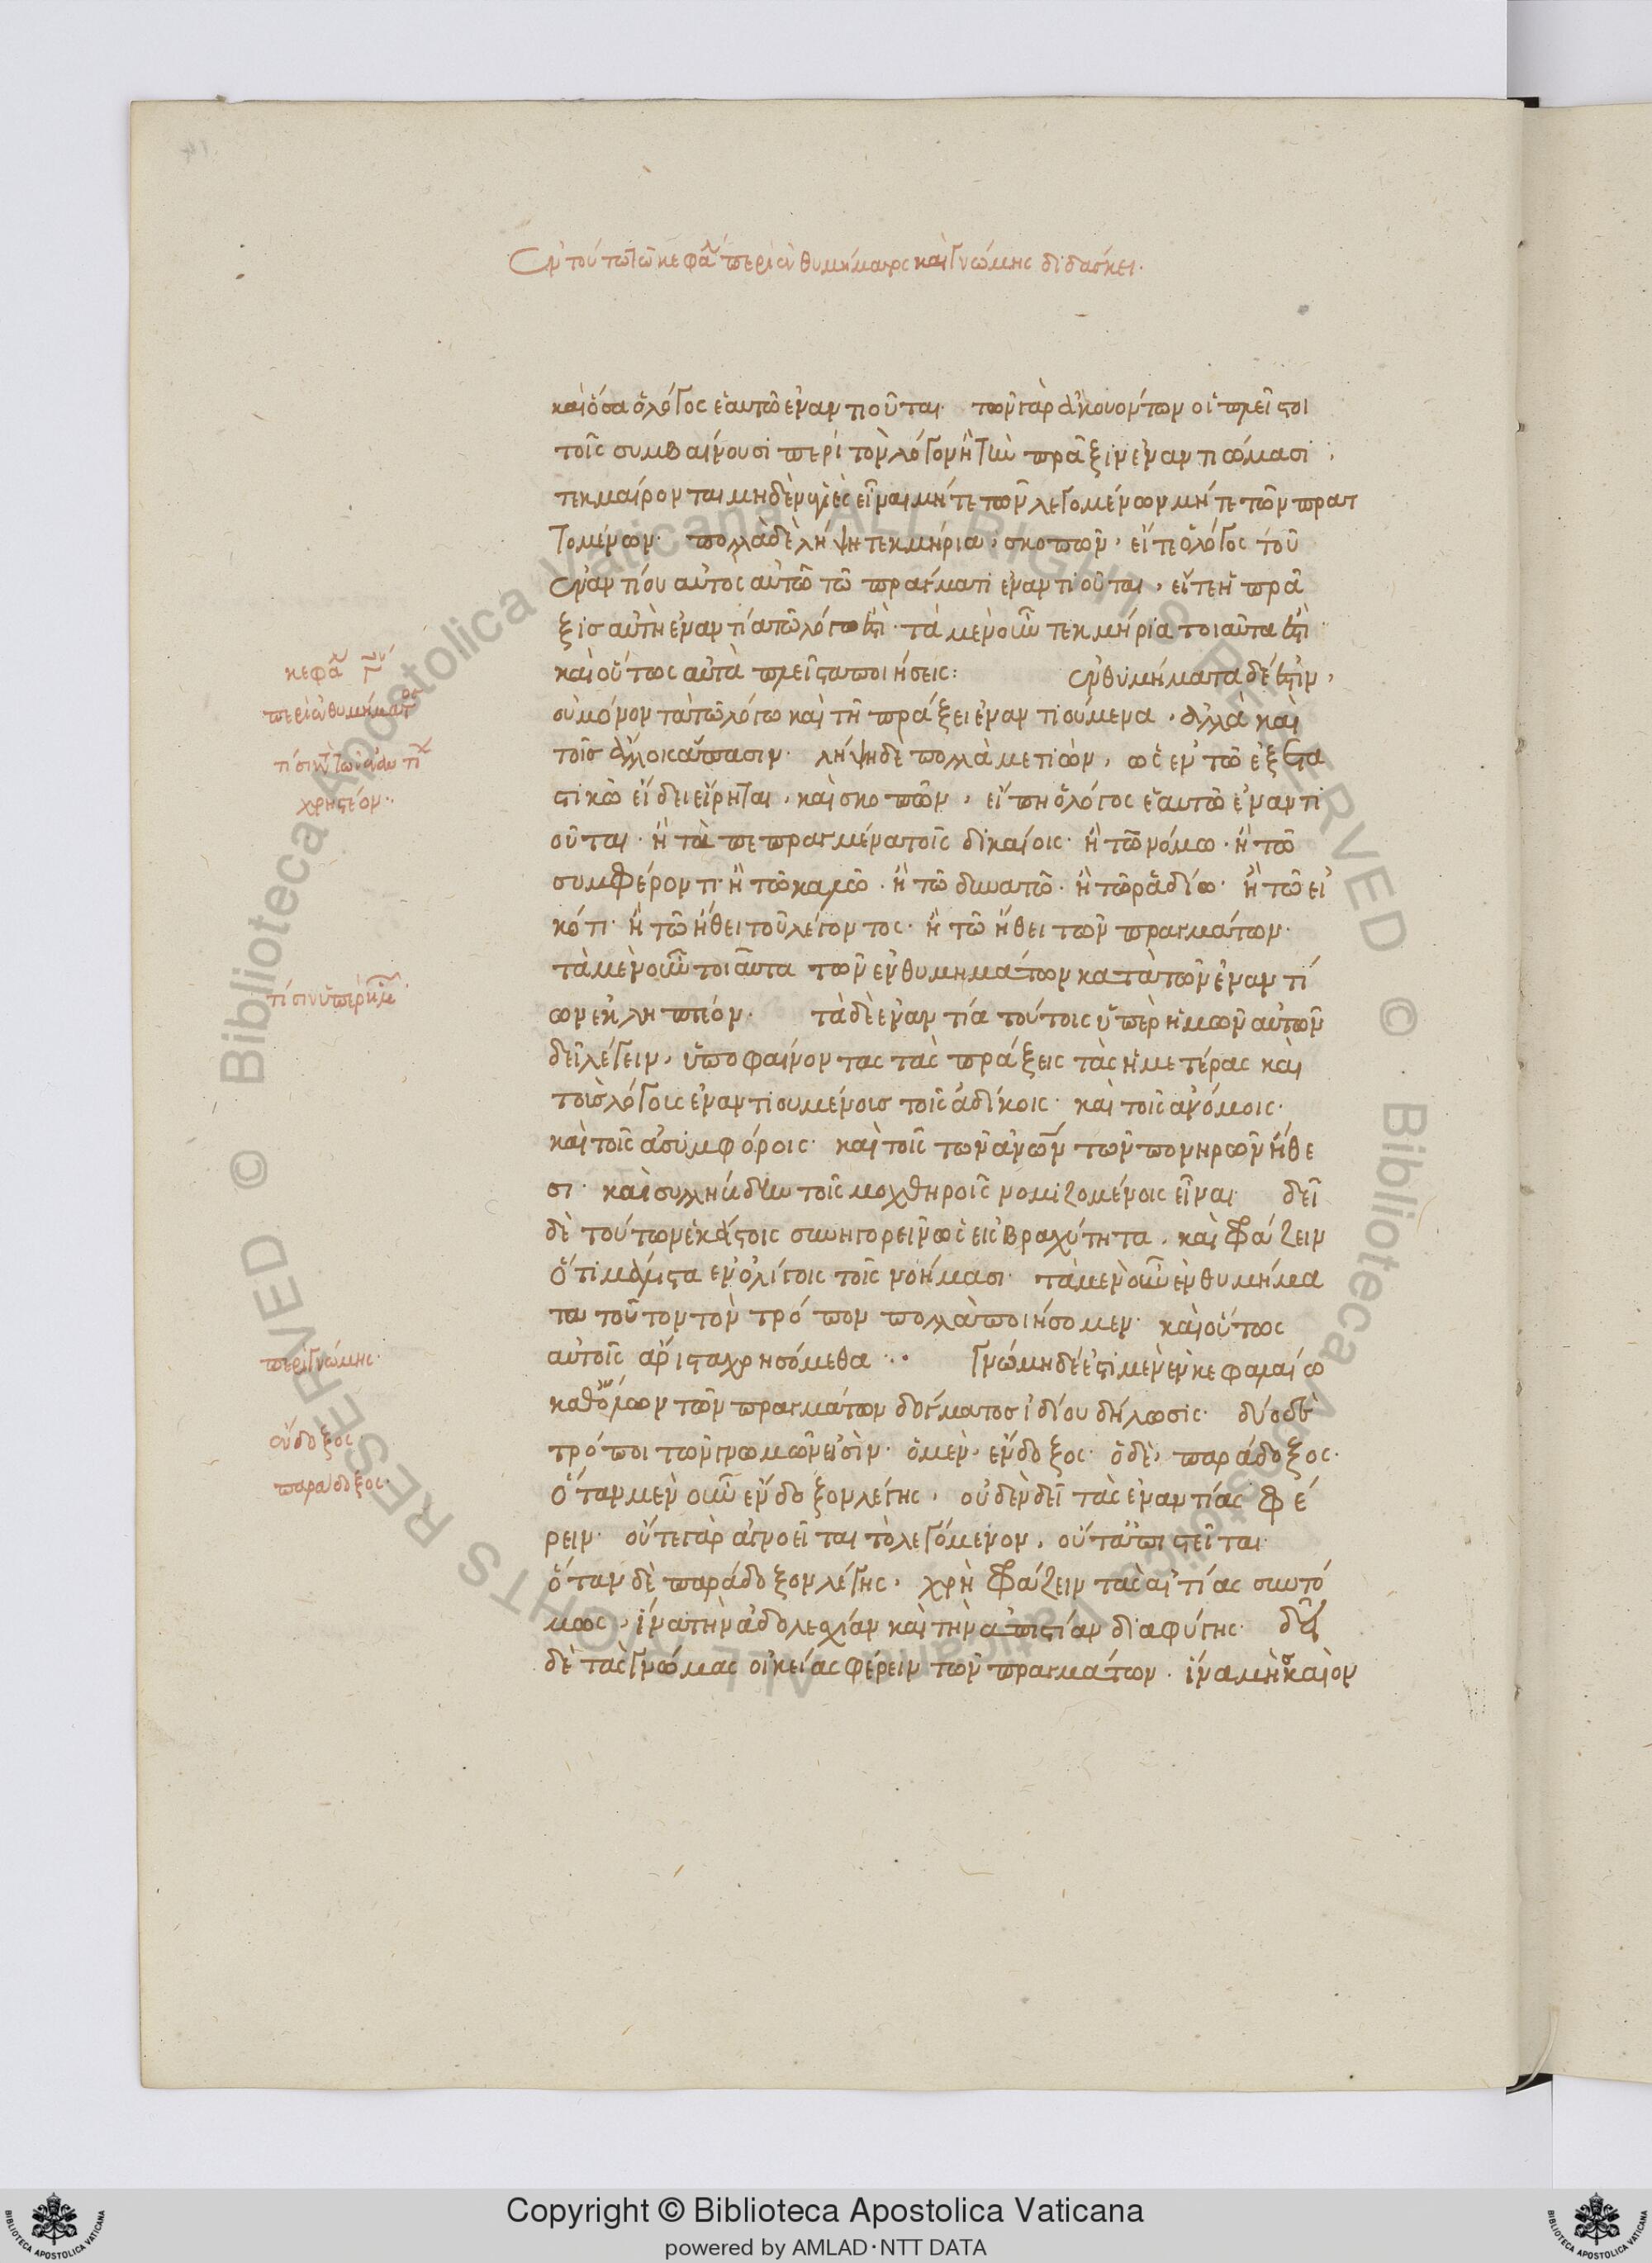 ἐν τούτω τῶ κεφαλ περὶ ἐνθυμήματος καὶ γνώμης διδάσκει.
καὶ ὅσα ὁ λόγος ἑαυτῶ ἐναντιοῦται. τῶν γὰρ ἀκουόντων οἱ πλεῖστοι
τοῖς συμβαίνουσι περὶ τὸν λόγον ἢ τὴν πρᾶξιν ἐναντιώμασι,
τεκμαίρονται μηδὲν ὑγιὲς εἶναι μήτε τῶν λεγομένων μήτε τῶν πρατ
τομένων. πολλὰ δὲ λήψη τεκμήρια, σκοπῶν, εἴτε ὁ λόγος τοῦ
ἐναντίου αὐτὸς αὐτῶ τῶ πράγματι ἐναντιοῦται, εἴτε ἡ πρᾶ
ξις αὐτὴ ἐναντία τῶ λόγω ἐστί. τὰ μὲν οὖν τεκμήρια τοιαῦτά ἐστι
καὶ οὕτως αὐτὰ πλεῖστα ποιήσεις: ἐνθυμήματα δέ ἐστιν,
οὐ μόνον τὰ τῶ λόγω καὶ τῆ πράξει ἐναντιούμενα, ἀλλὰ καὶ
τοῖς ἄλλοις ἅπασιν. λήψη δὲ πολλὰ μετιὼν, ὡς ἐν τῶ ἐξετα
στικῶ εἴδει εἴρηται, καὶ σκοπῶν, εἴ πη ὁ λόγος ἑαυτῶ ἐναντι
οῦται. ἢ τὰ πεπραγμένα τοῖς δικαίοις. ἢ τῶ νόμω. ἢ τῶ
συμφέροντι. ἢ τῶ καλῶ. ἢ τῶ δυνατῶ. ἢ τῶ ῥαδίω. ἢ τῶ εἰ
κότι. ἢ τῶ ἤθει τοῦ λέγοντος. ἢ τῶ ἤθει τῶν πραγμάτων.
τὰ μὲν οὖν τοιαῦτα τῶν ἐνθυμημάτων κατὰ τῶν ἐναντί
ων ἐκληπτέον. τὰ δὲ ἐναντία τούτοις ὑπὲρ ἡμῶν αὐτῶν
δεῖ λέγειν, ὑποφαίνοντας τὰς πράξεις τὰς ἡμετέρας καὶ
τοὺς λόγους ἐναντιουμένους τοῖς ἀδίκοις. καὶ τοῖς ἀνόμοις.
καὶ τοῖς ἀσυμφόροις. καὶ τοῖς τῶν ἀνων τῶν πονηρῶν ἤθε
σι. καὶ συλλήβδην τοῖς μοχθηροῖς νομιζομένοις εἶναι. δεῖ
δὲ τούτων ἑκάστοις συνηγορεῖν ὡς εἰς βραχύτητα. καὶ φράζειν
ὅτι μάλιστα ἐν ὀλίγοις τοῖς νοήμασι. τὰ μὲν οὖν ἐνθυμήμα
τα τοῦτον τὸν τρόπον πολλὰ ποιήσομεν. καὶ οὕτως
αὐτοῖς ἄριστα χρησόμεθα. γνώμη δέ ἐστι μὲν ἐν κεφαλαίω
καθόλων τῶν πραγμάτων δόγματος ἰδίου δήλωσις. δύο δὲ
τρόποι τῶν γνωμῶν εἰσίν. ὁ μὲν, ἔνδοξος. ὁ δὲ, παράδοξος.
ὅταν μὲν οὖν ἔνδοξον λέγης, οὐδὲν δεῖ τὰς ἐναντίας φέ
ρειν. οὔτε γὰρ ἀγνοεῖται τὸ λεγόμενον, οὔτ' ἀπιστεῖται.
ὅταν δὲ παράδοξον λέγης, χρὴ φράζειν τὰς αἰτίας συντό
μως, ἵνα τὴν ἀδολεσχίαν καὶ τὴν ἀπιστίαν διαφύγης. δεῖ
δὲ τὰς γνώμας οἰκείας φέρειν τῶν πραγμάτων. ἵνα μὴ σκαιὸν
κεφαλ
περὶ ἐνθυμήματος
χρηστέον.
τίσιν ὑπὲρ ἡμῶν
περὶ γνώμης.
ἔνδοξος.
παράδοξος.
Copyright © Biblioteca Apostolica Vaticana
powered by AMLAD·NTT DATA